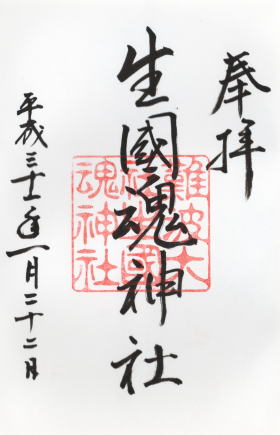 奉拝
生國魂神社
平成三十一年一月二十二日
難波大
社生國
魂神社